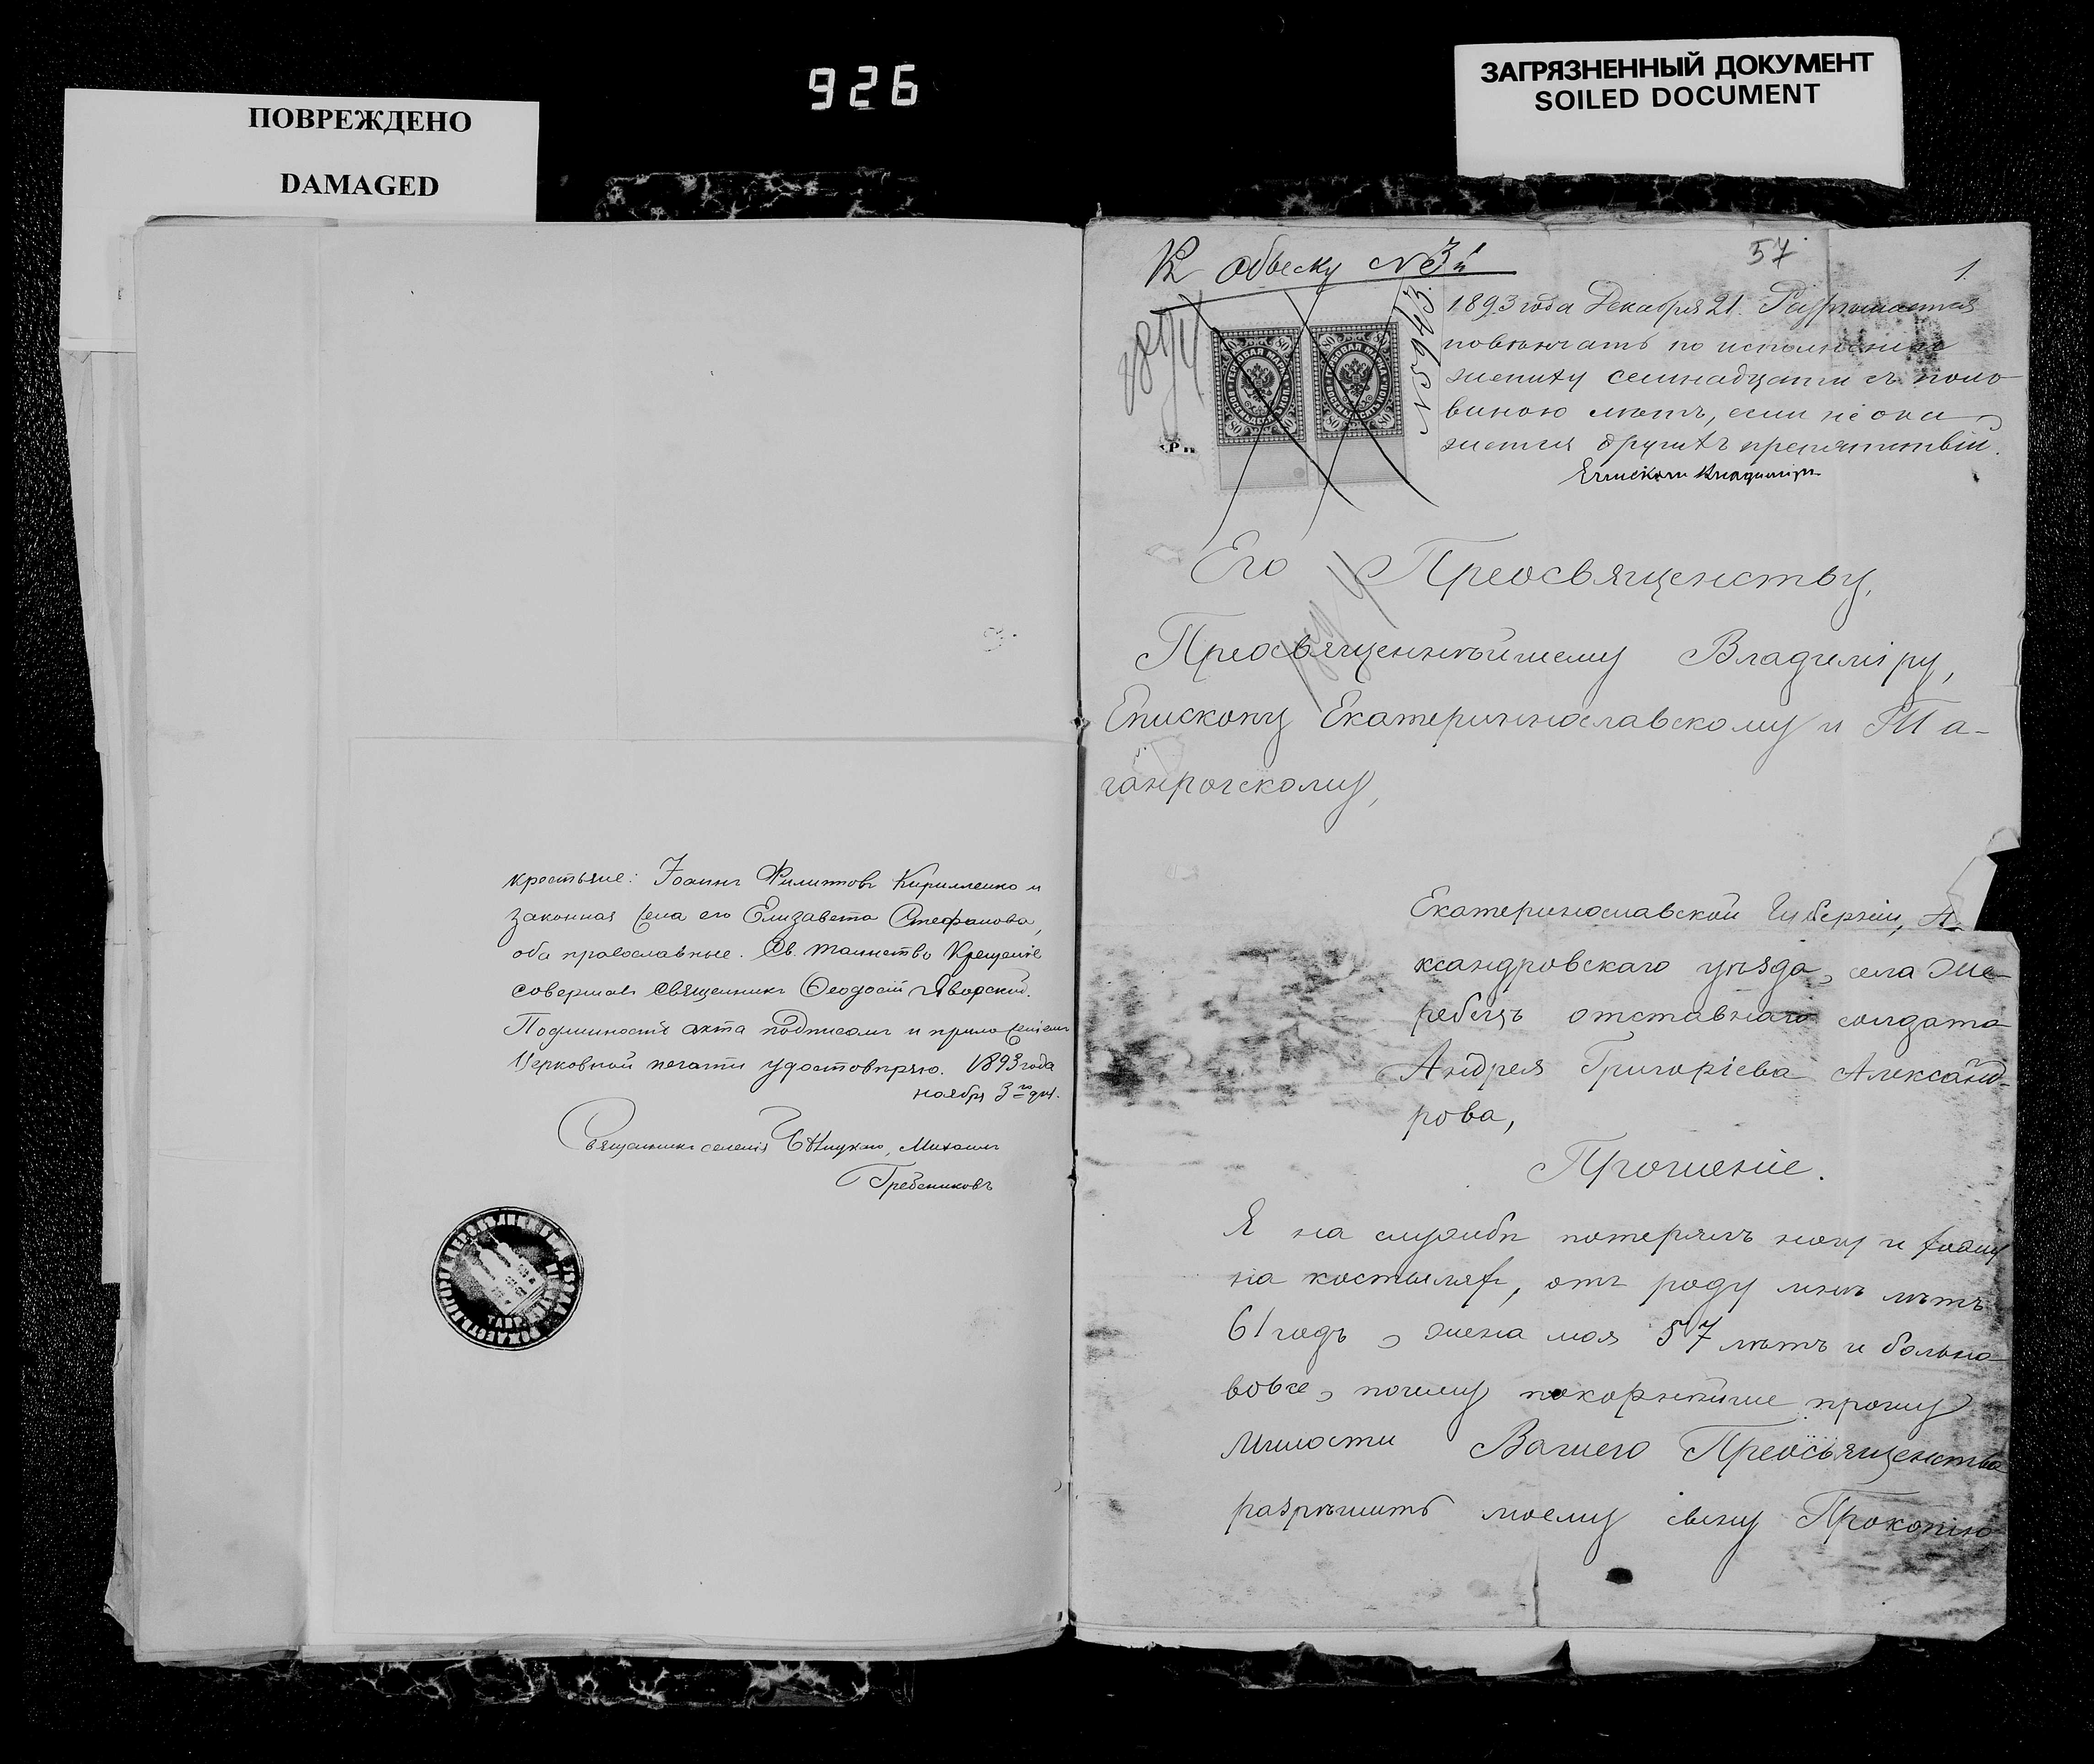 926
ПОВРЕЖДЕНО
DAMAGED
ЗАГРЯЗНЕННЫЙ ДОКУМЕНТ
SOILED DOCUMENT
крестьяне: Іоаннъ Филипповъ Кирилленко и
законная жена его Елизавета Стефанова,
оба православные. Св. таинство Крещенія
совершалъ Священникъ Ѳеодосій Яворскій.
Подлинность акта подписомъ и приложеніемъ
Церковной печати удостовѣряю. 1893 года
ноября 3го дня.
Священникъ селенія Михаилъ
Гребениковъ
Къ обыску № 3й
57
1.
№ 5943.
1893 года Декабря 21. Разрѣшается
повѣнчать по исполненіи
жениху семнадцати съ поло
виною лѣтъ, если не ока
жется другихъ препятствій.
Епископъ Владиміръ
80 80
Его Преосвященству,
Преосвященнѣйшему Владиміру,
Епископу Екатеринославскому и Та-
ганрогскому,
Екатеринославской Губерніи, А
ксандровскаго уѣзда, села Же-
ребецъ отставнаго солдата
Андрея Григоріева Александ-
рова,
Прошеніе.
Я на службѣ потерялъ ногу и хожу
на костыляхъ, отъ роду мнѣ лѣтъ
61 годъ, жена моя 57 лѣтъ и больна
вовсе, почему покорнѣйше прошу
Милости Вашего Преосвященства
разрѣшить моему сыну Прокопію